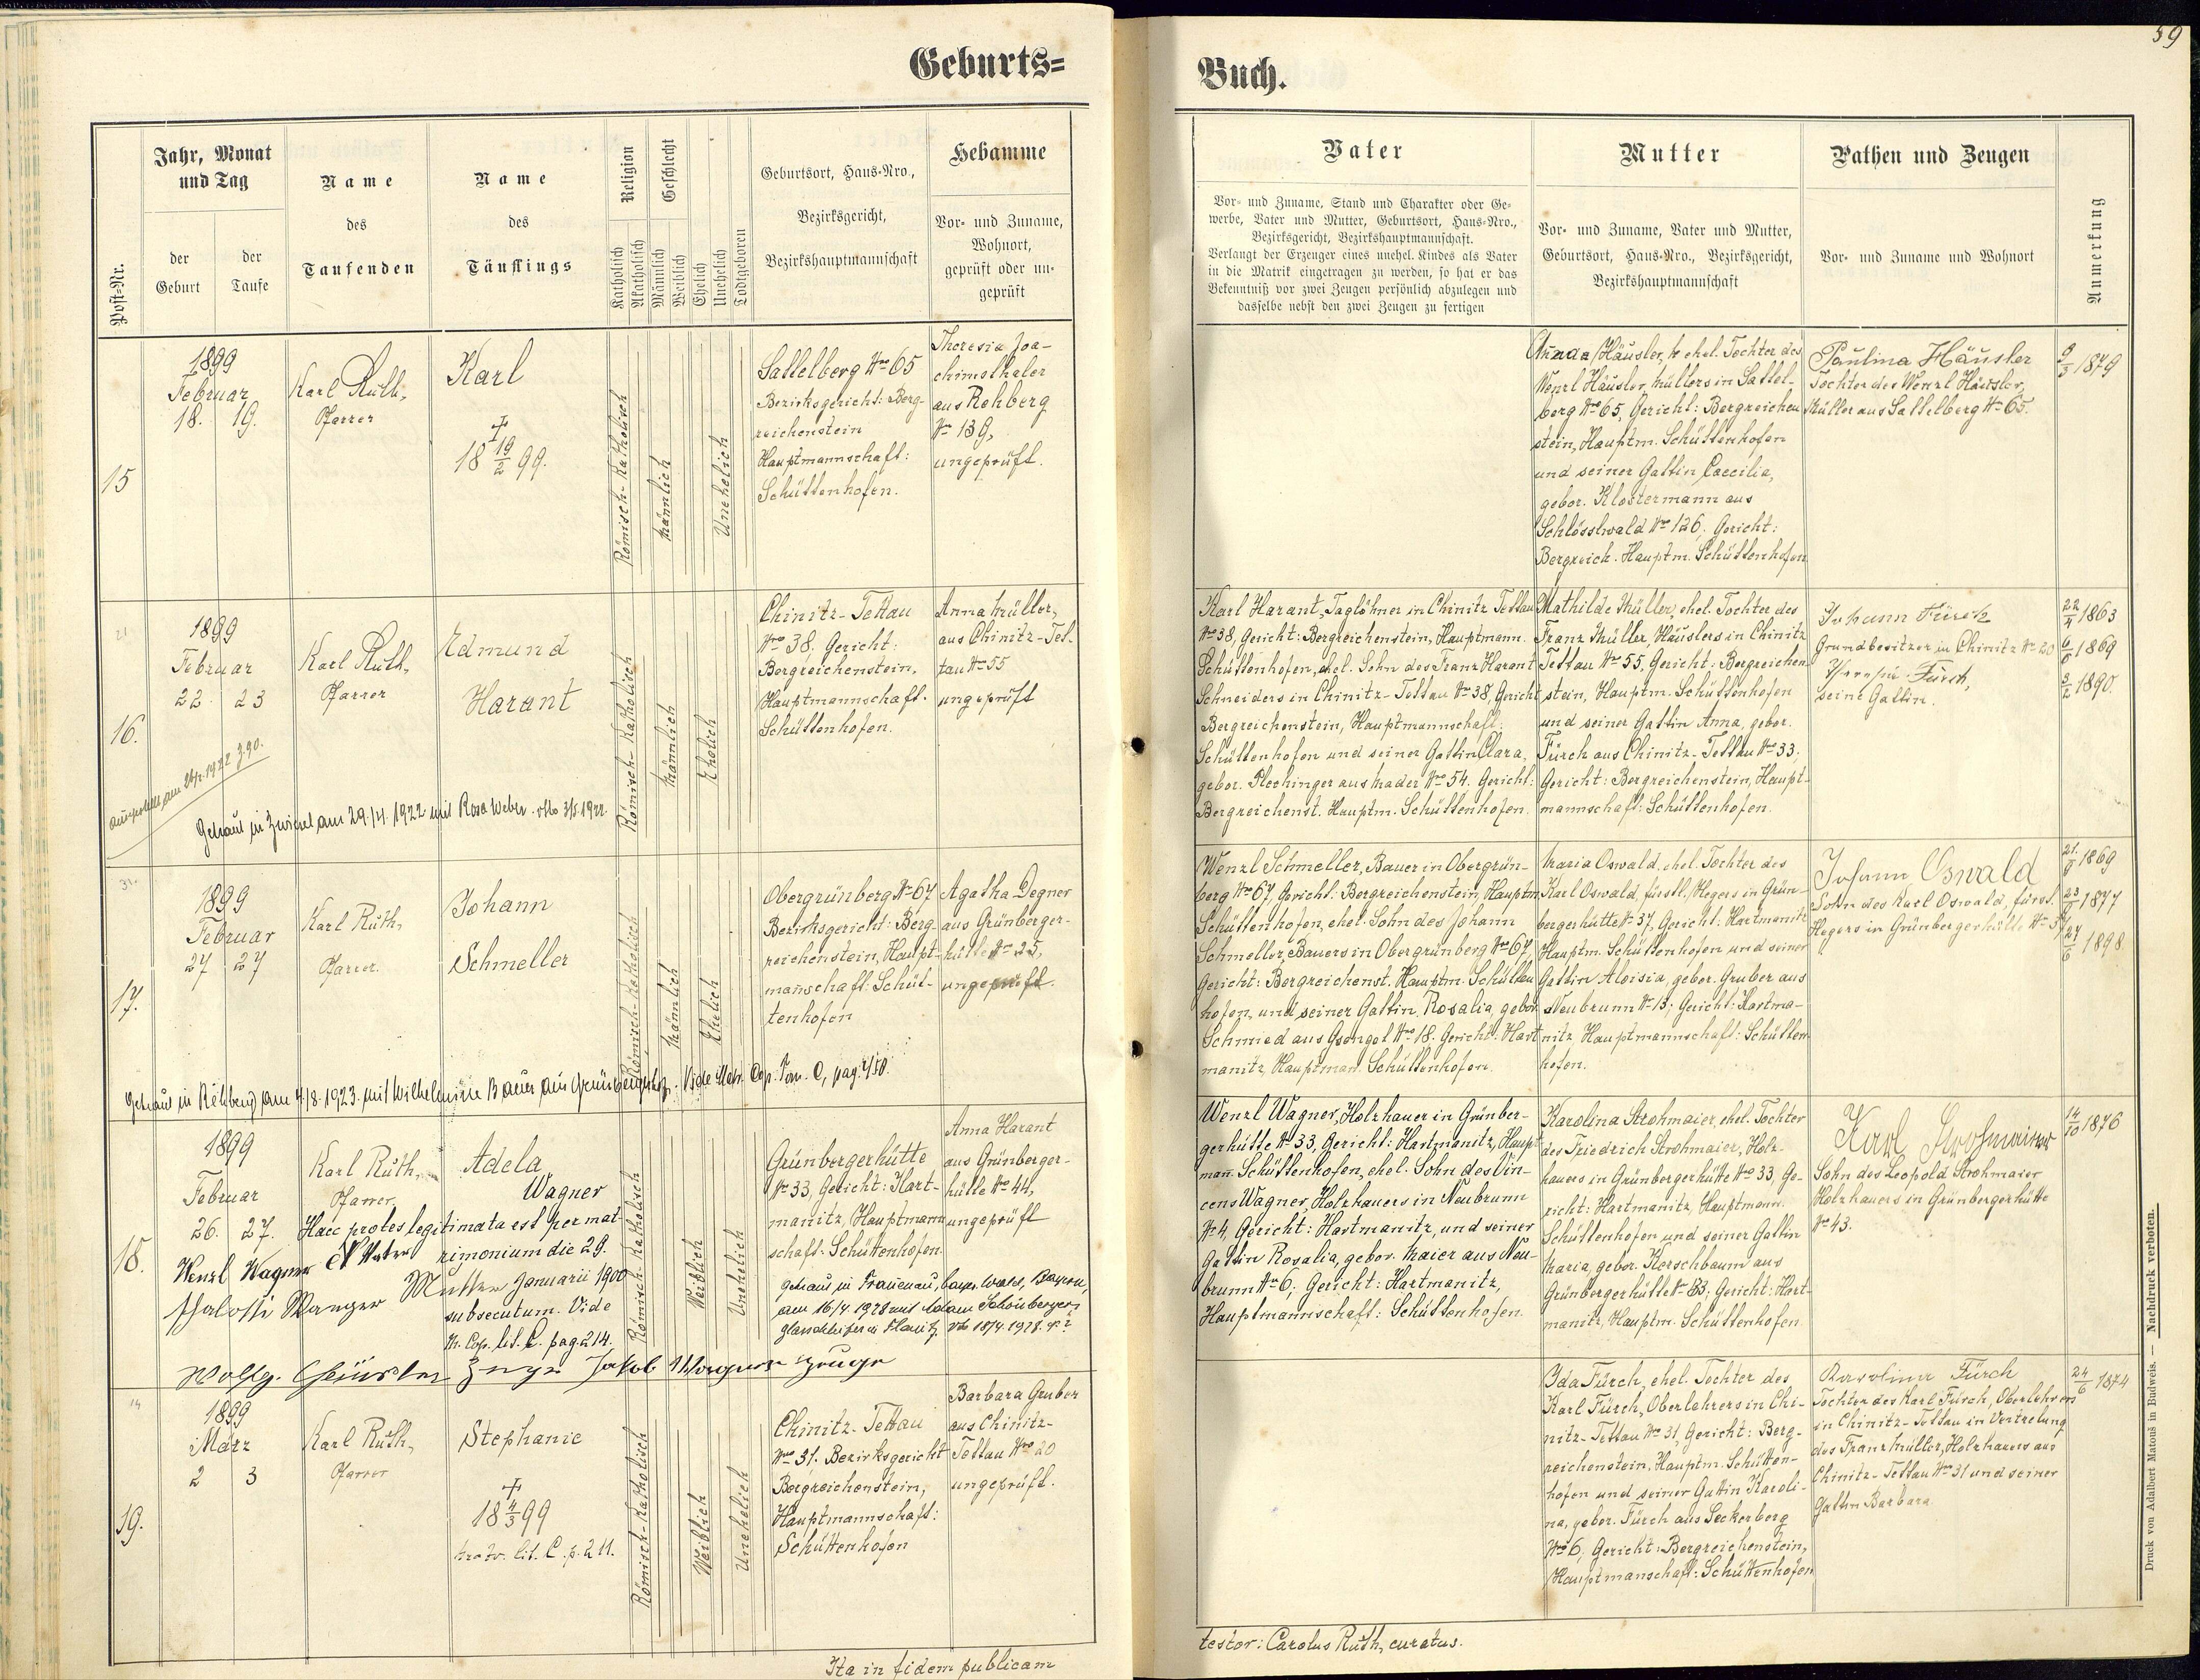 59
Geburts=
Buch.
Post-Nr.
Jahr, Monat
und Tag
der
Geburt
der
Taufe
Name
des
Taufenden
Name
des
Täuflings
Religion
Katholisch
Akatholisch
Geschlecht
Männlich
Weiblich
Ehelich
Unehelich
Todtgeboren
Geburtsort, Haus-Nro.,
Bezirksgericht,
Bezirkshauptmannschaft
Hebamme
Vor- und Zuname,
Wohnort,
geprüft oder un-
geprüft
Vater
Vor- und Zuname, Stand und Charakter oder Ge-
werbe, Vater und Mutter, Geburtsort, Haus-Nro.,
Bezirksgericht, Bezirkshauptmannschaft.
Verlangt der Erzeuger eines unehel. Kindes als Vater
in die Matrik eingetragen zu werden, so hat er das
Bekenntniß vor zwei Zeugen persönlich abzulegen und
dasselbe nebst den zwei Zeugen zu fertigen
Mutter
Vor- und Zuname, Vater und Mutter,
Geburtsort, Haus-Nro., Bezirksgericht,
Bezirkshauptmannschaft
Pathen und Zeugen
Vor- und Zuname und Wohnort
Anmerkung
15
1899
Februar
18. 19.
Karl Ruth,
Pfarrer
Karl
†
18 19/2 99.
Römisch-Katholisch
Männlich
Unehelich
Sattelberg Nro 65
Bezirksgericht: Berg-
reichenstein
Hauptmannschaft:
Schüttenhofen.
Theresia Joa-
chimsthaler
aus Rehberg
Nro 139,
ungeprüft.
Häusler, ehel. Tochter des
Wenzl Häusler, Müllers in Sattel-
berg Nro 65, Gericht: Bergreichen
stein, Hauptm. Schüttenhofen
und seiner Gattin Caecilia,
gebor. Klostermann aus
Schlösslwald Nro 126, Gericht:
Bergreich. Hauptm. Schüttenhofen
Paulina Häusler
Tochter des Wenzl Häusler,
Müller aus Sattelberg No 65.
1879
16.
1899
Februar
22. 23
Karl Ruth,
Pfarrer
Edmund
Harant
Römisch-Katholisch
Männlich
Ehelich
Chinitz-Tettau
Nro 38, Gericht:
Bergreichenstein,
Hauptmannschaft.
Schüttenhofen.
Anna Müller,
aus Chinitz-Tet-
tau No 55
ungeprüft
Karl Harant, Taglöhner in Chinitz Tettau
No 38, Gericht: Bergreichenstein, Hauptmann.
Schüttenhofen, ehel. Sohn des Franz Harant
Schneiders in Chinitz-Tettau No 38, Gericht
Bergreichenstein, Hauptmannschaft:
Schüttenhofen und seiner Gattin Clara,
gebor. Plechinger aus Mader Nro 54. Gericht:
Bergreichenst. Hauptm. Schüttenhofen.
Mathilde Müller, ehel. Tochter des
Franz Müller, Häuslers in Chinitz
Tettau No 55, Gericht: Bergreichen
stein, Hauptm. Schüttenhofen
und seiner Gattin Anna, gebor.
Fürch aus Chinitz-Tettau No 33,
Gericht: Bergreichenstein, Haupt-
mannschaft: Schüttenhofen.
Johann Fürch
Grundbesitzer in Chinitz No 20
Fürch,
seine Gattin.
22/4 1863
6/6 1869
3/2 1890.
Getraut in Zwiesel am 29./4. 1922 mit Rosa Weber. 3/5. 1922.
17.
1899
Februar
27 27
Karl Ruth,
Pfarrer.
Johann
Schmeller
Römisch-Katholisch
Männlich
Ehelich
Obergrünberg No 67
Bezirksgericht: Berg-
reichenstein, Haupt-
mañschaft. Schüt-
tenhofen
Agatha Degner
aus Grünberger-
hütte No 25,
ungeprüft.
Wenzl Schmeller, Bauer in Obergrün-
berg No 67, Gericht: Bergreichenstein, Hauptm.
Schüttenhofen, ehel. Sohn des Johann
Schmeller, Bauers in Obergrünberg Nro 67,
Gericht: Bergreichenst. Hauptm. Schütten
hofen, und seiner Gattin Rosalia, gebor.
Schmied aus Gsengel Nro 18. Gericht. Hart
manitz, Hauptman. Schüttenhofen.
Maria Oswald, ehel. Tochter des
Karl Oswald, fürstl. Hegers in Grün-
bergerhütte No 37, Gericht: Hartmanitz
Hauptm. Schüttenhofen und seiner
Gattin Aloisia, gebor. Gruber aus
Neubrunn No 13, Gericht: Hartma-
nitz Hauptmannschaft: Schütten
hofen.
Johann Oswald
Sohn des Karl Oswald, fürstl.
Hegers in Grünbergerhütte No 37
1869
1877
27/6 1898
Getraut in Rehberg am 4./8. 1923. mit Wilhelmine Bauer aus Grünbergerhütte. Vide Matr. Cop. Tom. C, pag. 4/50.
18.
1899
Februar
26. 27.
Karl Ruth,
Pfarrer
Adela
Wagner
Haec proles legitimata est per mat-
rimonium die 29.
Januarii 1900
subsecutum. Vide
M. Cop. lit. C. pag. 214.
Wenzl Wagner Vater
Mutter
Zeuge Jakob Wagner Zeuge
Römisch-Katholisch
Weiblich
Unehelich
Grünbergerhütte
No 33, Gericht: Hart-
manitz, Hauptmann
schaft: Schüttenhofen.
Anna Harant
aus Grünberger-
hütte Nro 44,
ungeprüft
getraut in Frauenau, bayr. Wald, Bayern,
am 16/4. 1928 mit Adam Schönberger,
Glasschleifer in
Wenzl Wagner, Holzhauer in Grünber-
gerhütte No 33, Gericht: Hartmanitz, Haupt
mañ. Schüttenhofen, ehel. Sohn des Vin-
cens Wagner, Holzhauers in Neubrunn
No 4, Gericht: Hartmanitz, und seiner
Gattin Rosalia, gebor. Maier aus Neu-
brunn No 6, Gericht: Hartmanitz,
Hauptmannschaft: Schüttenhofen.
Karolina Strohmaier, ehel. Tochter
des Friedrich Strohmaier, Holz-
hauers in Grünbergerhütte Nro 33, Ge-
richt: Hartmanitz, Hauptmann.
Schüttenhofen und seiner Gattin
Maria, gebor. Kerschbaum aus
Grünbergerhütte No 33, Gericht: Hart-
manitz, Hauptm. Schüttenhofen
Karl Strohmaier
Sohn des Leopold Strohmaier
Holzhauers in Grünbergerhütte
No 43.
14/10 1876
19.
1899
März
2 3
Karl Ruth,
Pfarrer
Stephanie
†
18 4/3 99
lit. C. p. 211.
Römisch-Katholisch
Weiblich
Unehelich
Chinitz-Tettau
Nro 31. Bezirksgericht
Bergreichenstein,
Hauptmannschaft:
Schüttenhofen
Barbara Gruber
aus Chinitz-
Tettau Nro 20
ungeprüft.
Ida Fürch, ehel. Tochter des
Karl Fürch, Oberlehrers in Chi-
nitz-Tettau No 31, Gericht: Berg-
reichenstein, Hauptm. Schütten-
hofen und seiner Gattin Karoli-
na, gebor. Fürch aus Seckerberg
Nro 6, Gericht: Bergreichenstein,
Hauptmanschaft: Schüttenhofen
Karolina Fürch
Tochter des Karl Fürch, Oberlehrers
in Chinitz-Tettau in Vertretung
des Franz Müller, Holzhauers aus
Chinitz-Tettau No 31 und seiner
Gattin Barbara
24/6 1874
Ita in fidem publicam
testor: Carolus Ruth, curatus.
Druck von Adalbert Matouš in Budweis. — Nachdruck verboten.